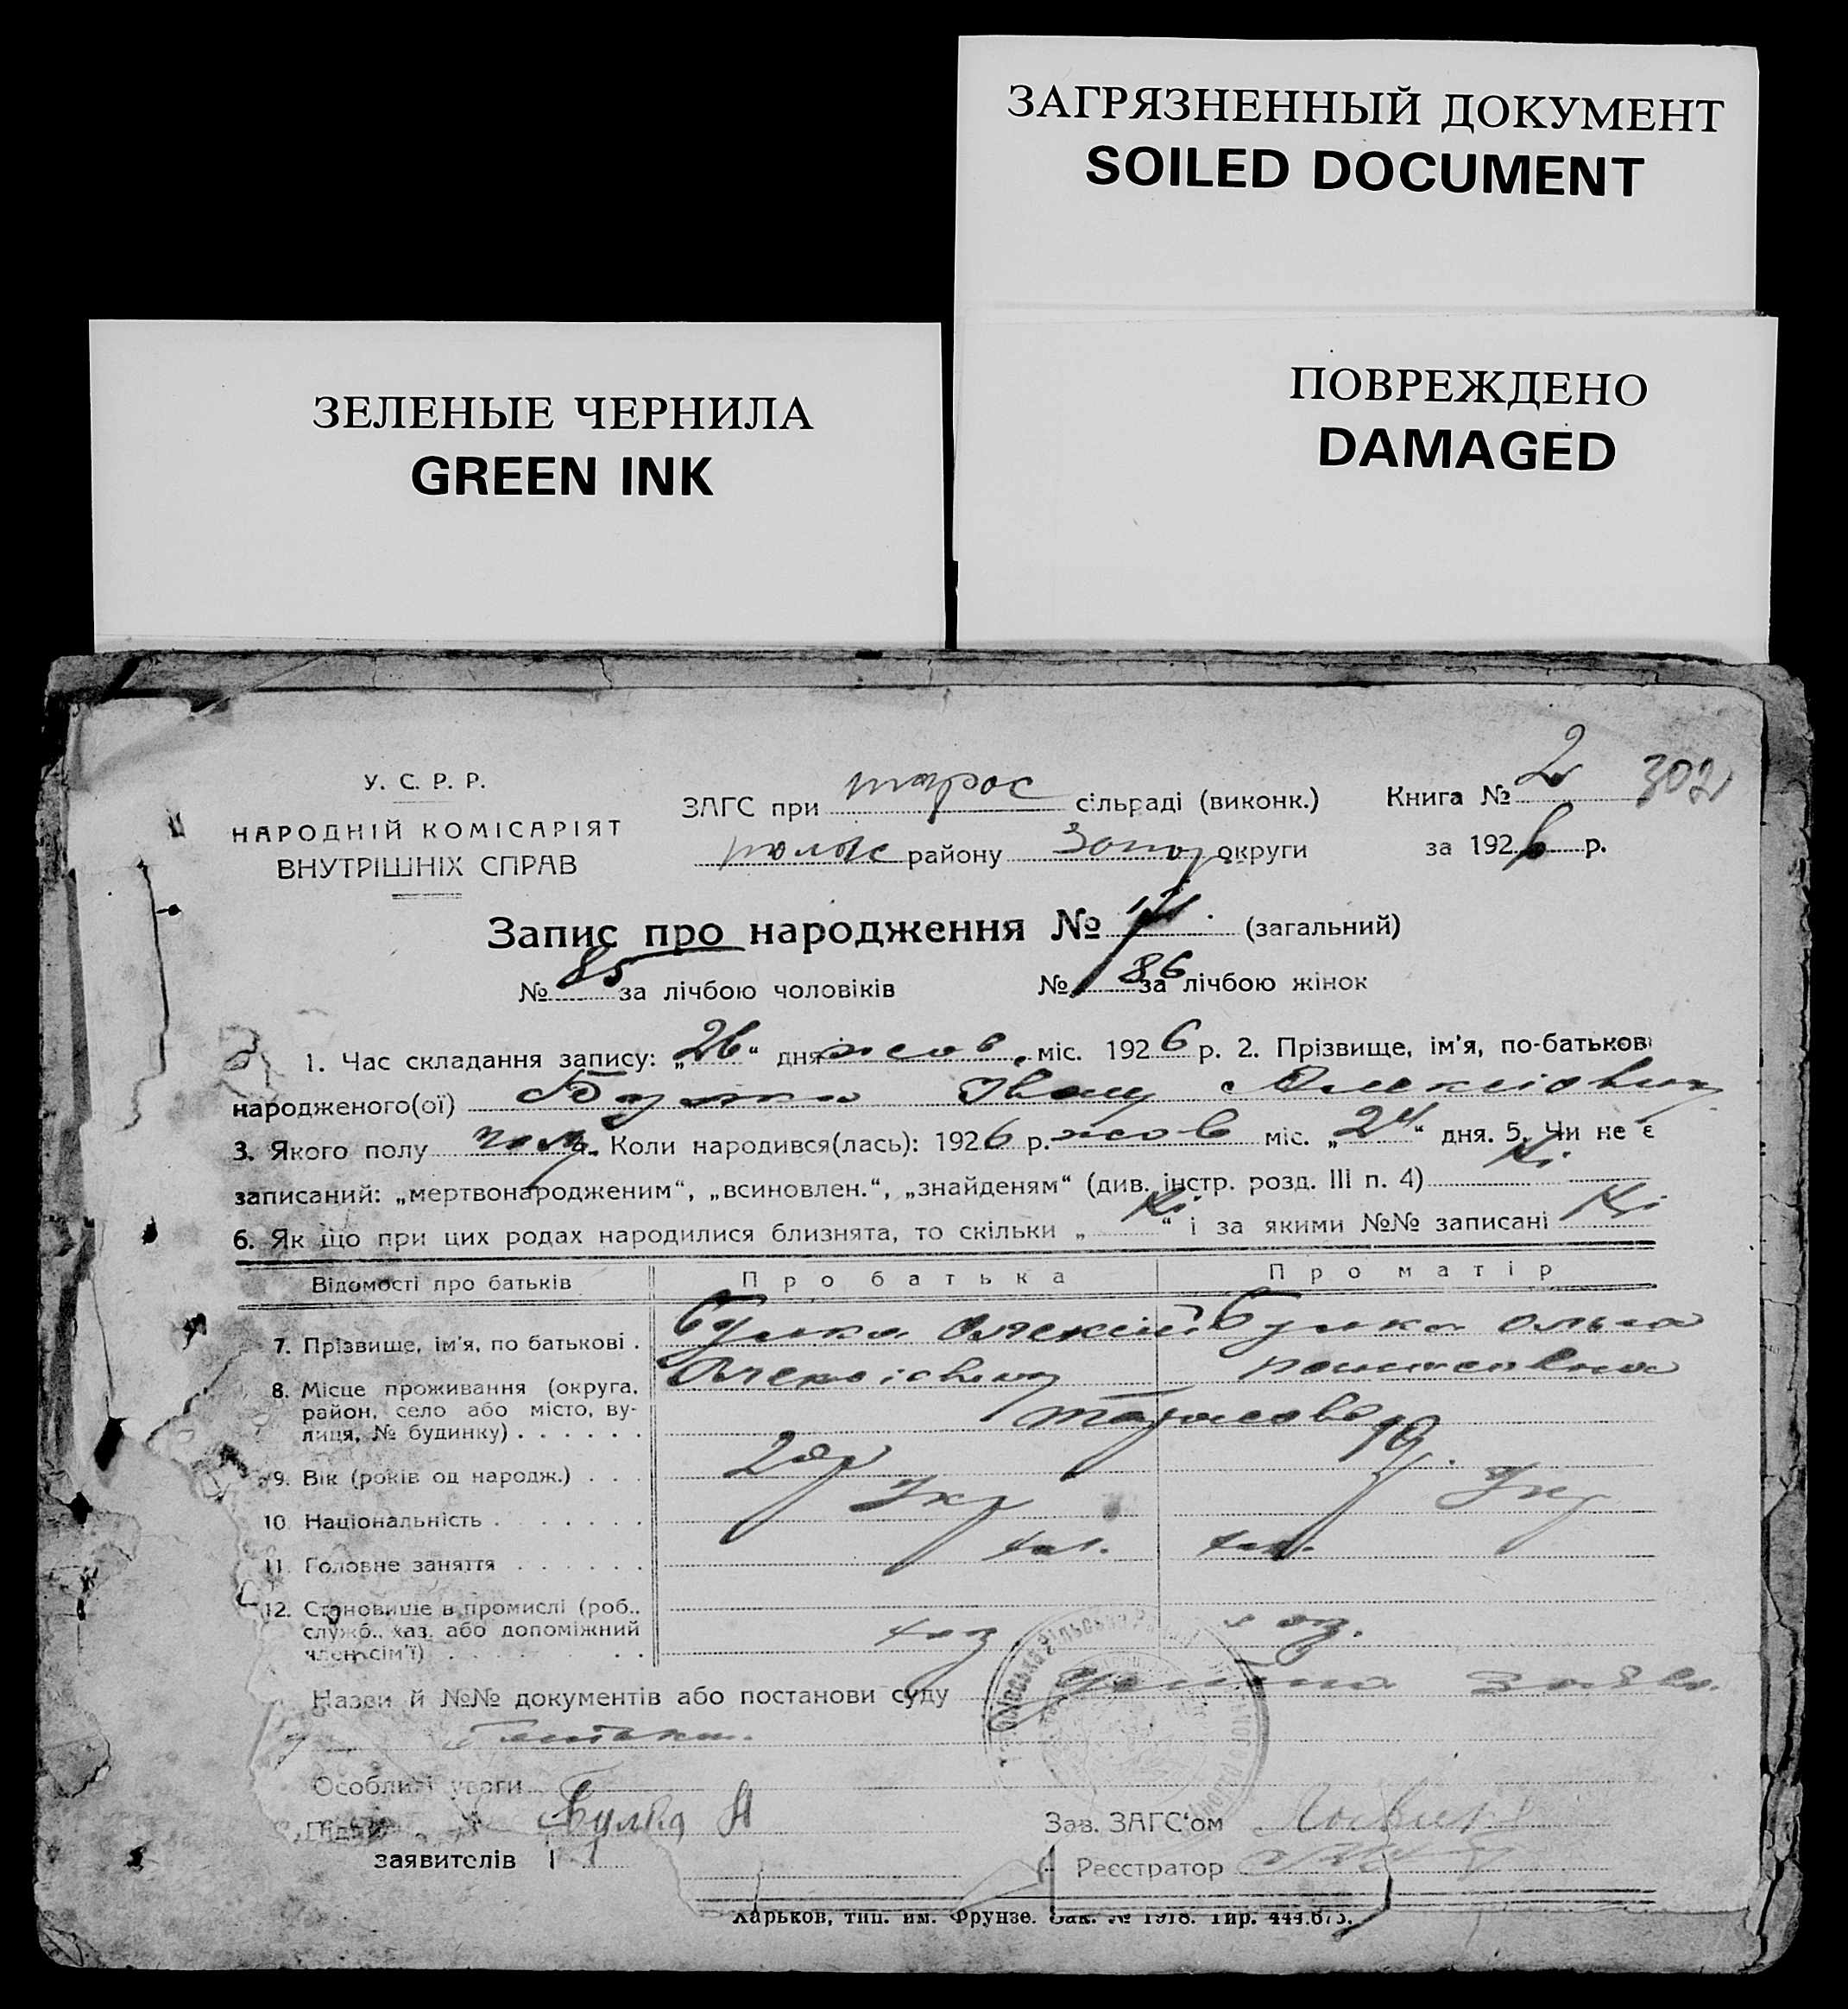 ЗАГРЯЗНЕННЫЙ ДОКУМЕНТ
SOILED DOCUMENT
ЗЕЛЕНЫЕ ЧЕРНИЛА
GREEN INK
ПОВРЕЖДЕНО
DAMAGED
У. С. Р. Р.
НАРОДНІЙ КОМІСАРІЯТ
ВНУТРІШНІХ СПРАВ
ЗАГС при тарас сільраді (виконк.)
району Запор округи
Книга № 2 302
за 1926 р.
Запис про народження № (загальний)
№ 85 за лічбою чоловіків № 86 за лічбою жінок
1. Час складання запису: „26“ дня жов. міс. 1926 р. 2. Прізвище, ім'я, по-батькові
народженого(ої) Булка Іван Алексіович
3. Якого полу чол. Коли народився(лась): 1926 р. жов міс. „24“ дня. 5. Чи не є
записаний: „мертвонародженим“, „всиновлен.“, „знайденям“ (див. інстр. розд. III п. 4) Ні
6. Як що при цих родах народилися близнята, то скільки „Ні“ і за якими №№ записані Ні
Відомості про батьків Про батька Про матір
7. Прізвище, ім'я, по батькові . Булка Олексій Булка Ольга
8. Місце проживання (округа, район, село або місто, вулиця, № будинку) . . . . . . Тарасовка
9. Вік (років од народж.) . . . 20р 19
10. Національність . . . . . . . Укр Укр
11. Головне заняття . . . . . . хл. хл.
12. Становище в промислі (роб., служб., хаз. або допоміжний член сім'ї) . . . хоз хоз.
Назви й №№ документів або постанови суду устна заяв.
батька.
Особливі уваги
Підпи
заявителів 1 Булка А
Зав. ЗАГС'ом
Реєстратор
Харьков, тип. им. Фрунзе. Зак. № 1918. Тир. 444.675.